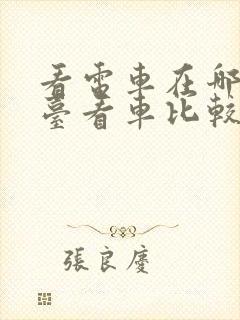 看電車在哪
臺看車比較
張良慶